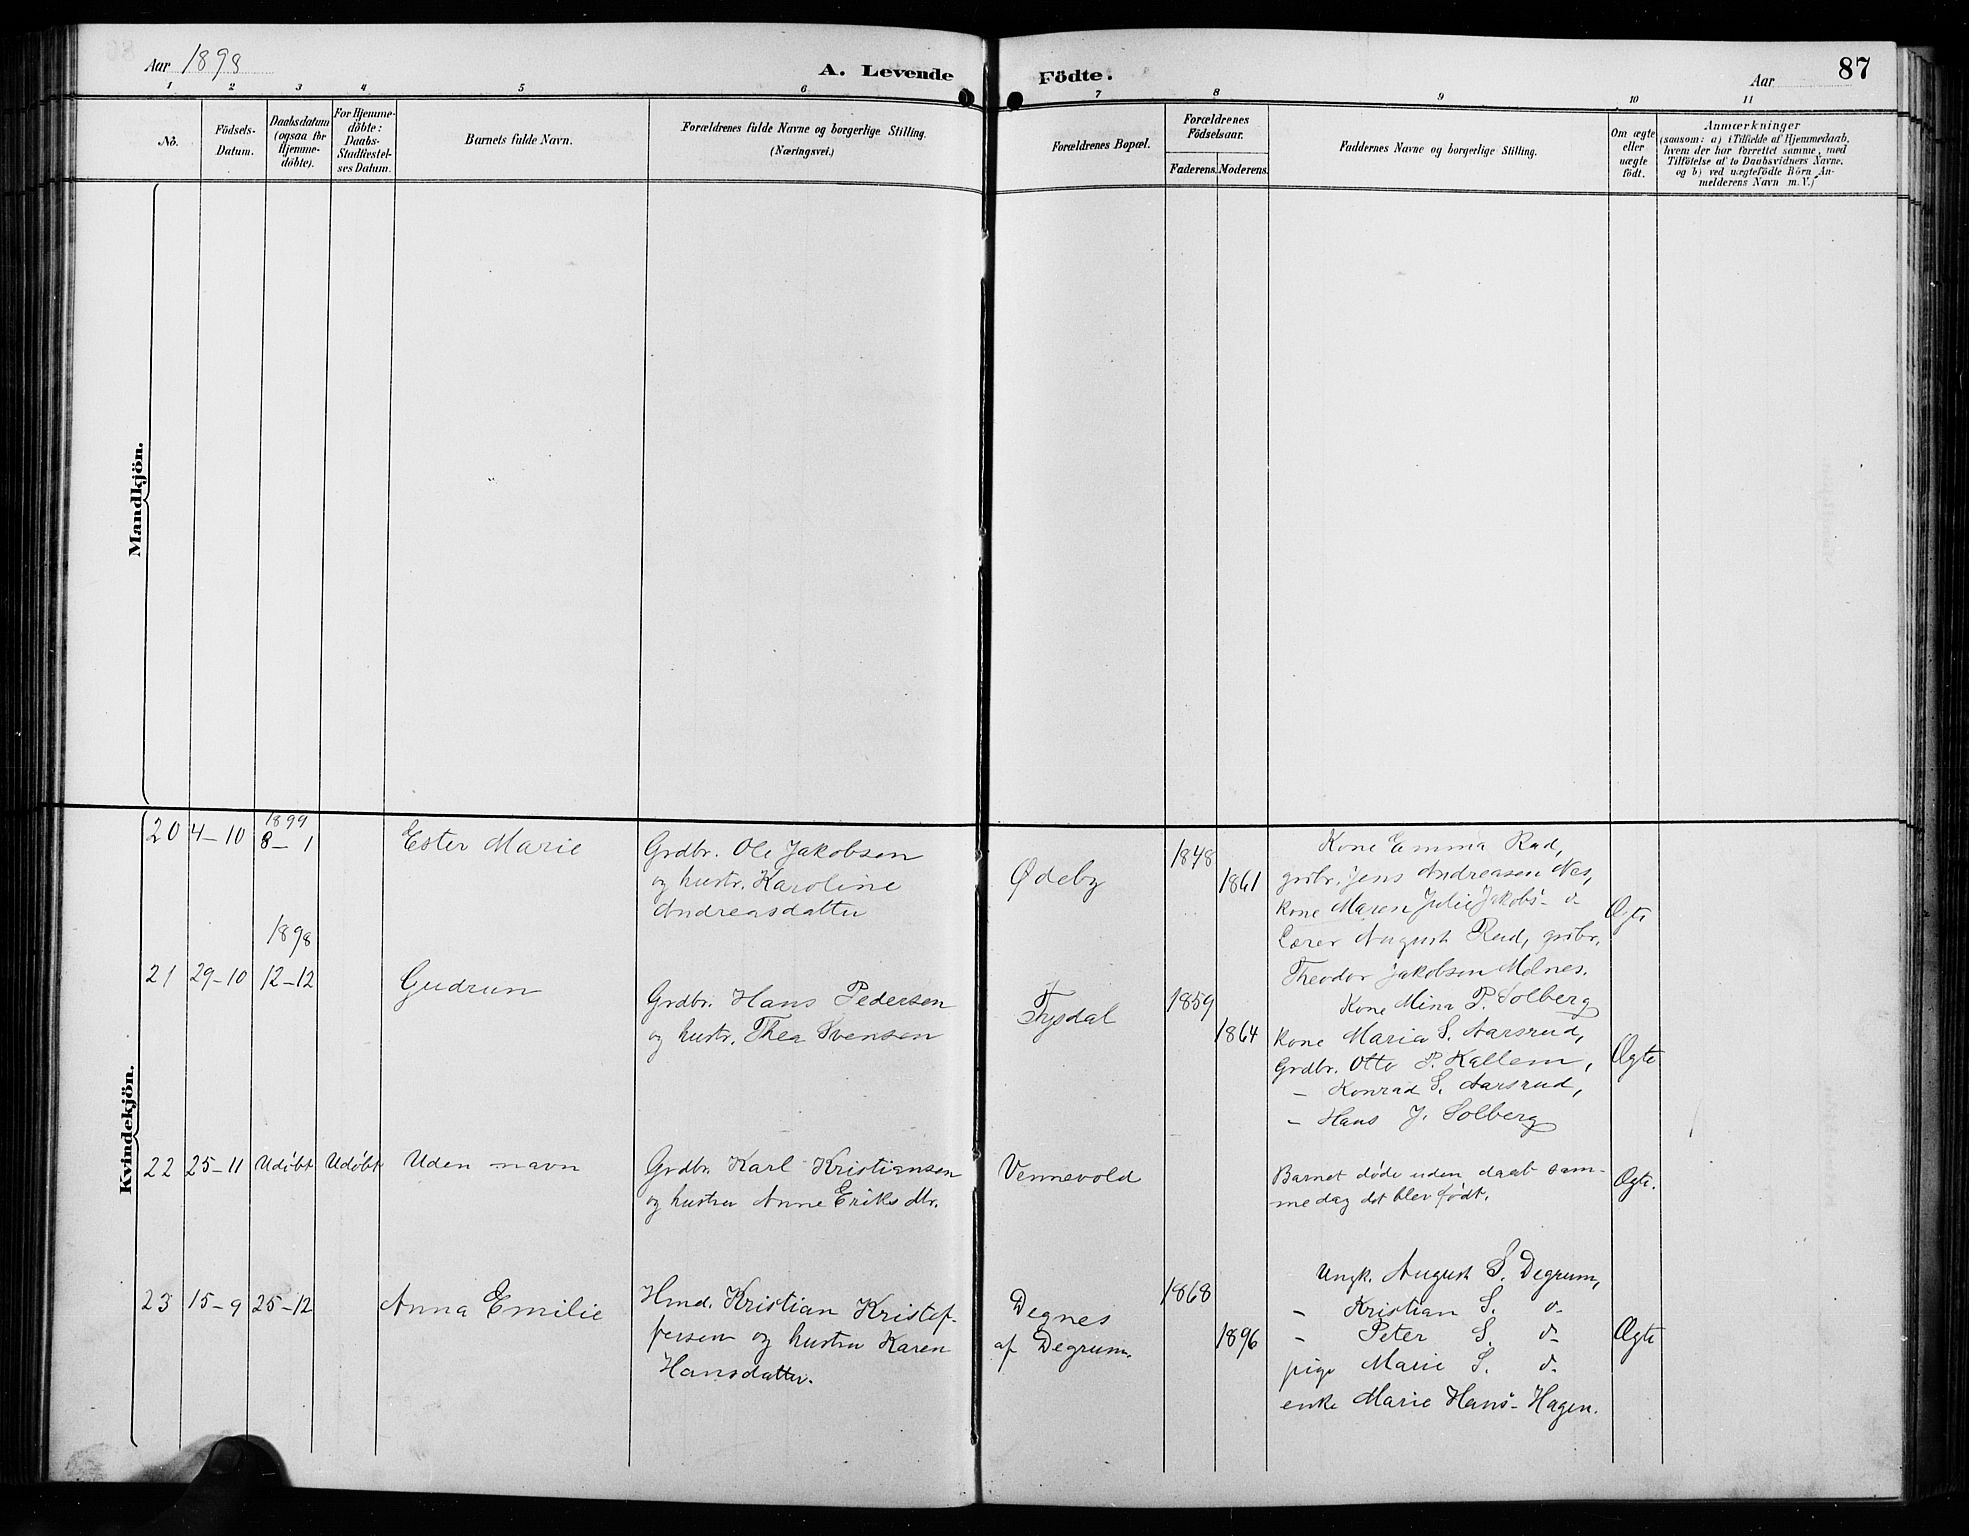 Aar 1898
A. Levende
Födte.
Aar
87
1 2 3 4 5 6 7 8 9 10 11
No.
Födsels-
Datum.
Daabsdatum
(ogsaa for
Hjemme-
döbte).
For Hjemme-
döbte:
Daabs-
Stadfæstel-
ses Datum.
Barnets fulde Navn.
Forældrenes fulde Navne og borgerlige Stilling.
(Næringsvei.)
Forældrenes Bopæl.
Forældrenes
Födselsaar.
Faderens. Moderens.
Faddernes Navne og borgerlige Stilling.
Om ægte
eller
uægte
födt.
Anmærkninger
(saasom: a) i Tilfælde af Hjemmedaab,
hvem der har forrettet samme, med
Tilföielse af to Daabsvidners Navne.
og b) ved uægtefödte Börn An-
melderens Navn m. V.)
Mandkjön.
Kvindekjön.
20 4-10 1899
8-1
Ester Marie
Grdbr. Ole Jakobsen
og hustr. Karoline
Andreasdatter
Ødeby
1848
1861
Kone Emma Rud,
grdbr. Jens Andreasen Nes,
kone Maren Julie Jakobs- d-
Lærer August Rud, grdbr.
Theodor Jakobsen Melnes.
Ægte
1898
21 29-10 12-12
Gudrun
Grdbr. Hans Pedersen
og hustr. Thea Svensen
Tysdal
1859
1864
Kone Mina P. Solberg
kone Maria S. Aarsrud,
Grdbr. Otto P. Kallem,
- Konrad S. Aarsrud,
- Hans J. Solberg
Ægte
22 25-11 Udøbt Udøbt Uden navn
Grdbr. Karl Kristiansen
og hustru Anne Eriks dtr.
Vennevold
Barnet døde uden daab sam-
me dag det blev født.
Ægte.
23 15-9 25-12
Anna Emilie
Hmd. Kristian Kristof-
fersen og hustru Karen
Hansdatter.
Degnes
af Degrum.
1868
1896
Ungk. August S. Degrum,
- Kristian S. d-
- Peter S. d-
pige Marie S. d-
enke Marie Hans- Hagen.
Ægte